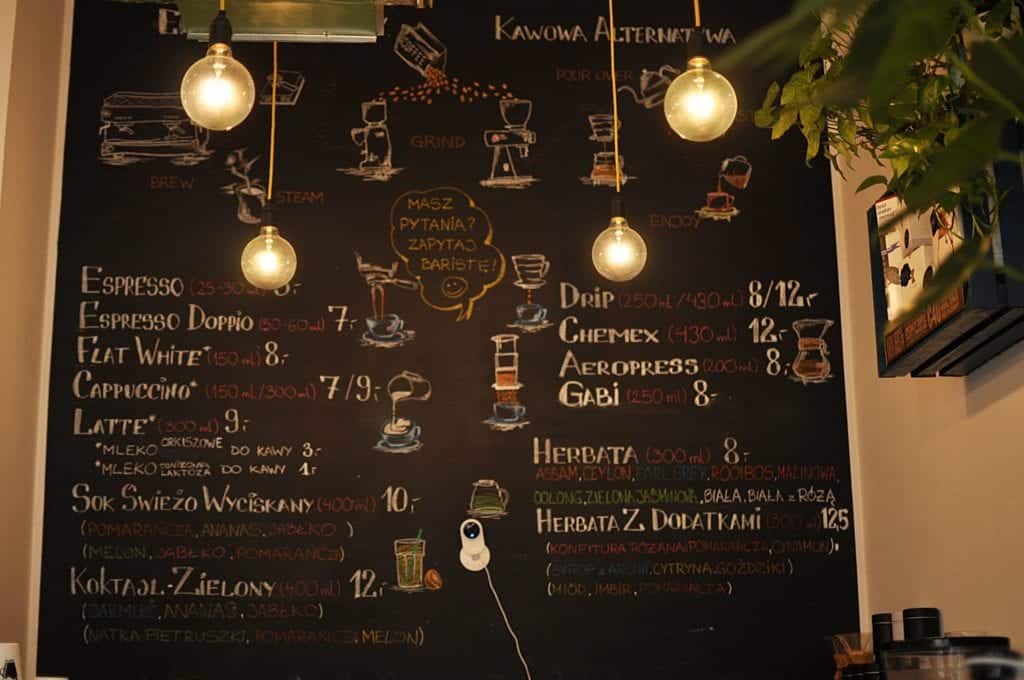 KAWOWA ALTERNATYWA
POUR OVER
GRIND
BREW
STEAM
ENJOY
MASZ
PYTANIA?
ZAPYTAJ
BARISTĘ!
ESPRESSO (25-30ml)
ESPRESSO DOPPIO (50-60ml) 7,-
FLAT WHITE* (150ml) 8,-
CAPPUCCINO* (150ml/300ml) 7/9,-
LATTE* (300ml) 9,-
*MLEKO ORKISZOWE DO KAWY 3,-
*MLEKO LAKTOZA DO KAWY 1,-
SOK ŚWIEŻO WYCISKANY (400ml) 10,-
(POMARAŃCZA, ANANAS, JABŁKO)
(MELON, JABŁKO, POMARAŃCZ)
KOKTAJL-ZIELONY (400ml) 12,-
(JARMUŻ, ANANAS, JABŁKO)
(NATKA PIETRUSZKI, POMARAŃCZ, MELON)
DRIP (250ml/430ml) 8/12,-
CHEMEX (430ml) 12,-
AEROPRESS (200ml) 8,-
GABI (250ml) 8,-
HERBATA (300ml) 8,-
ASSAM, CEYLON, EARL GREY, ROOIBOS, MALINOWA,
OOLONG, ZIELONA JAŚMINOWA, BIAŁA, BIAŁA z RÓŻĄ
HERBATA Z DODATKAMI (300ml) 12,5
(KONFITURA RÓŻANA, POMARAŃCZA, CYNAMON)
(SYROP z, CYTRYNA, GOŹDZIKI)
(MIÓD, IMBIR, POMARAŃCZA)